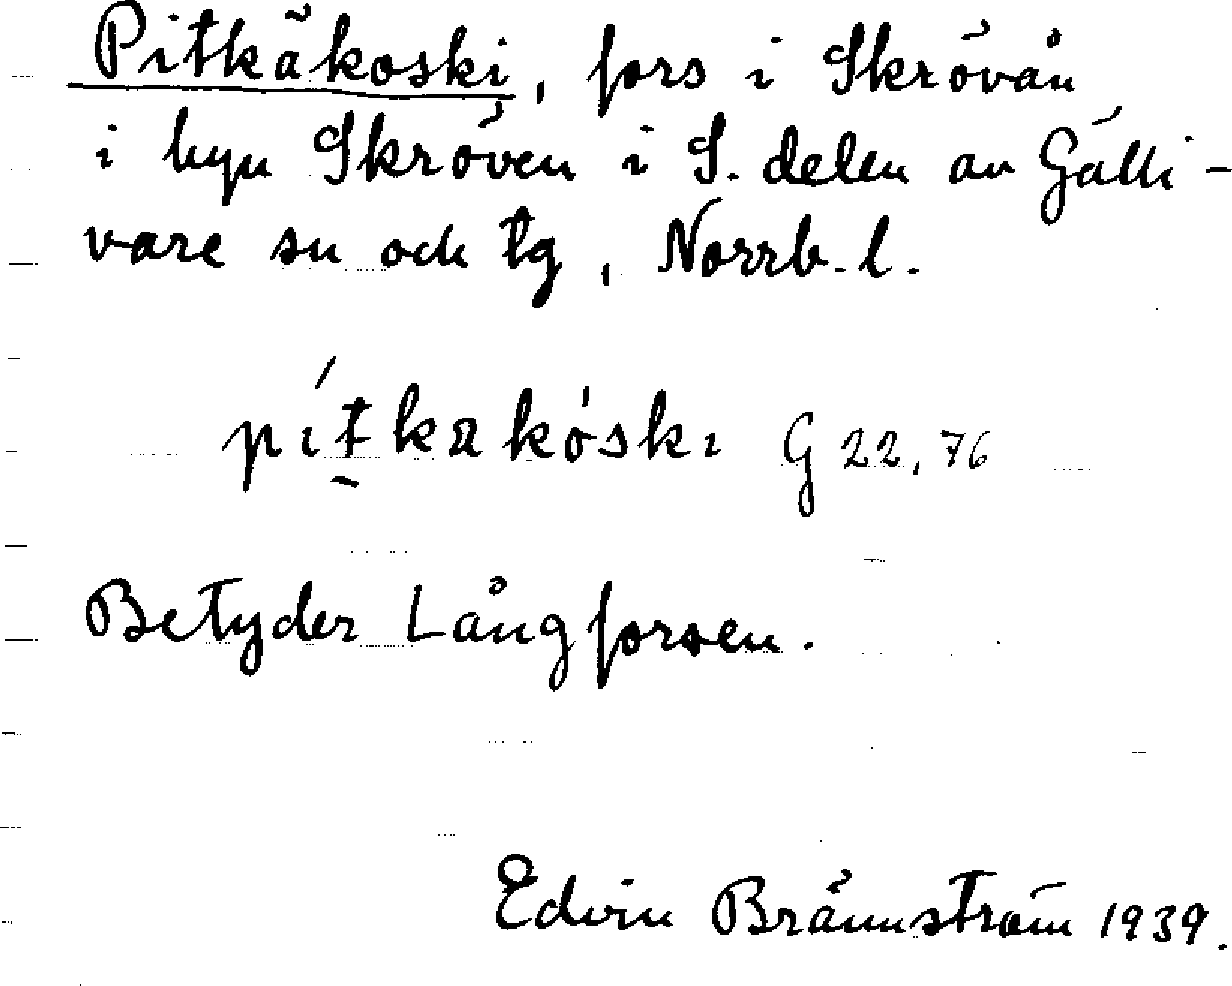 Pitkäkoski, fors i Skrövån
i byn Skröven i S. delen av Gälli-
vare sn och tg, Norrb. l.
pítkakóski G 22,76
Betyder Långforsen.
Edvin Brännström 1939.